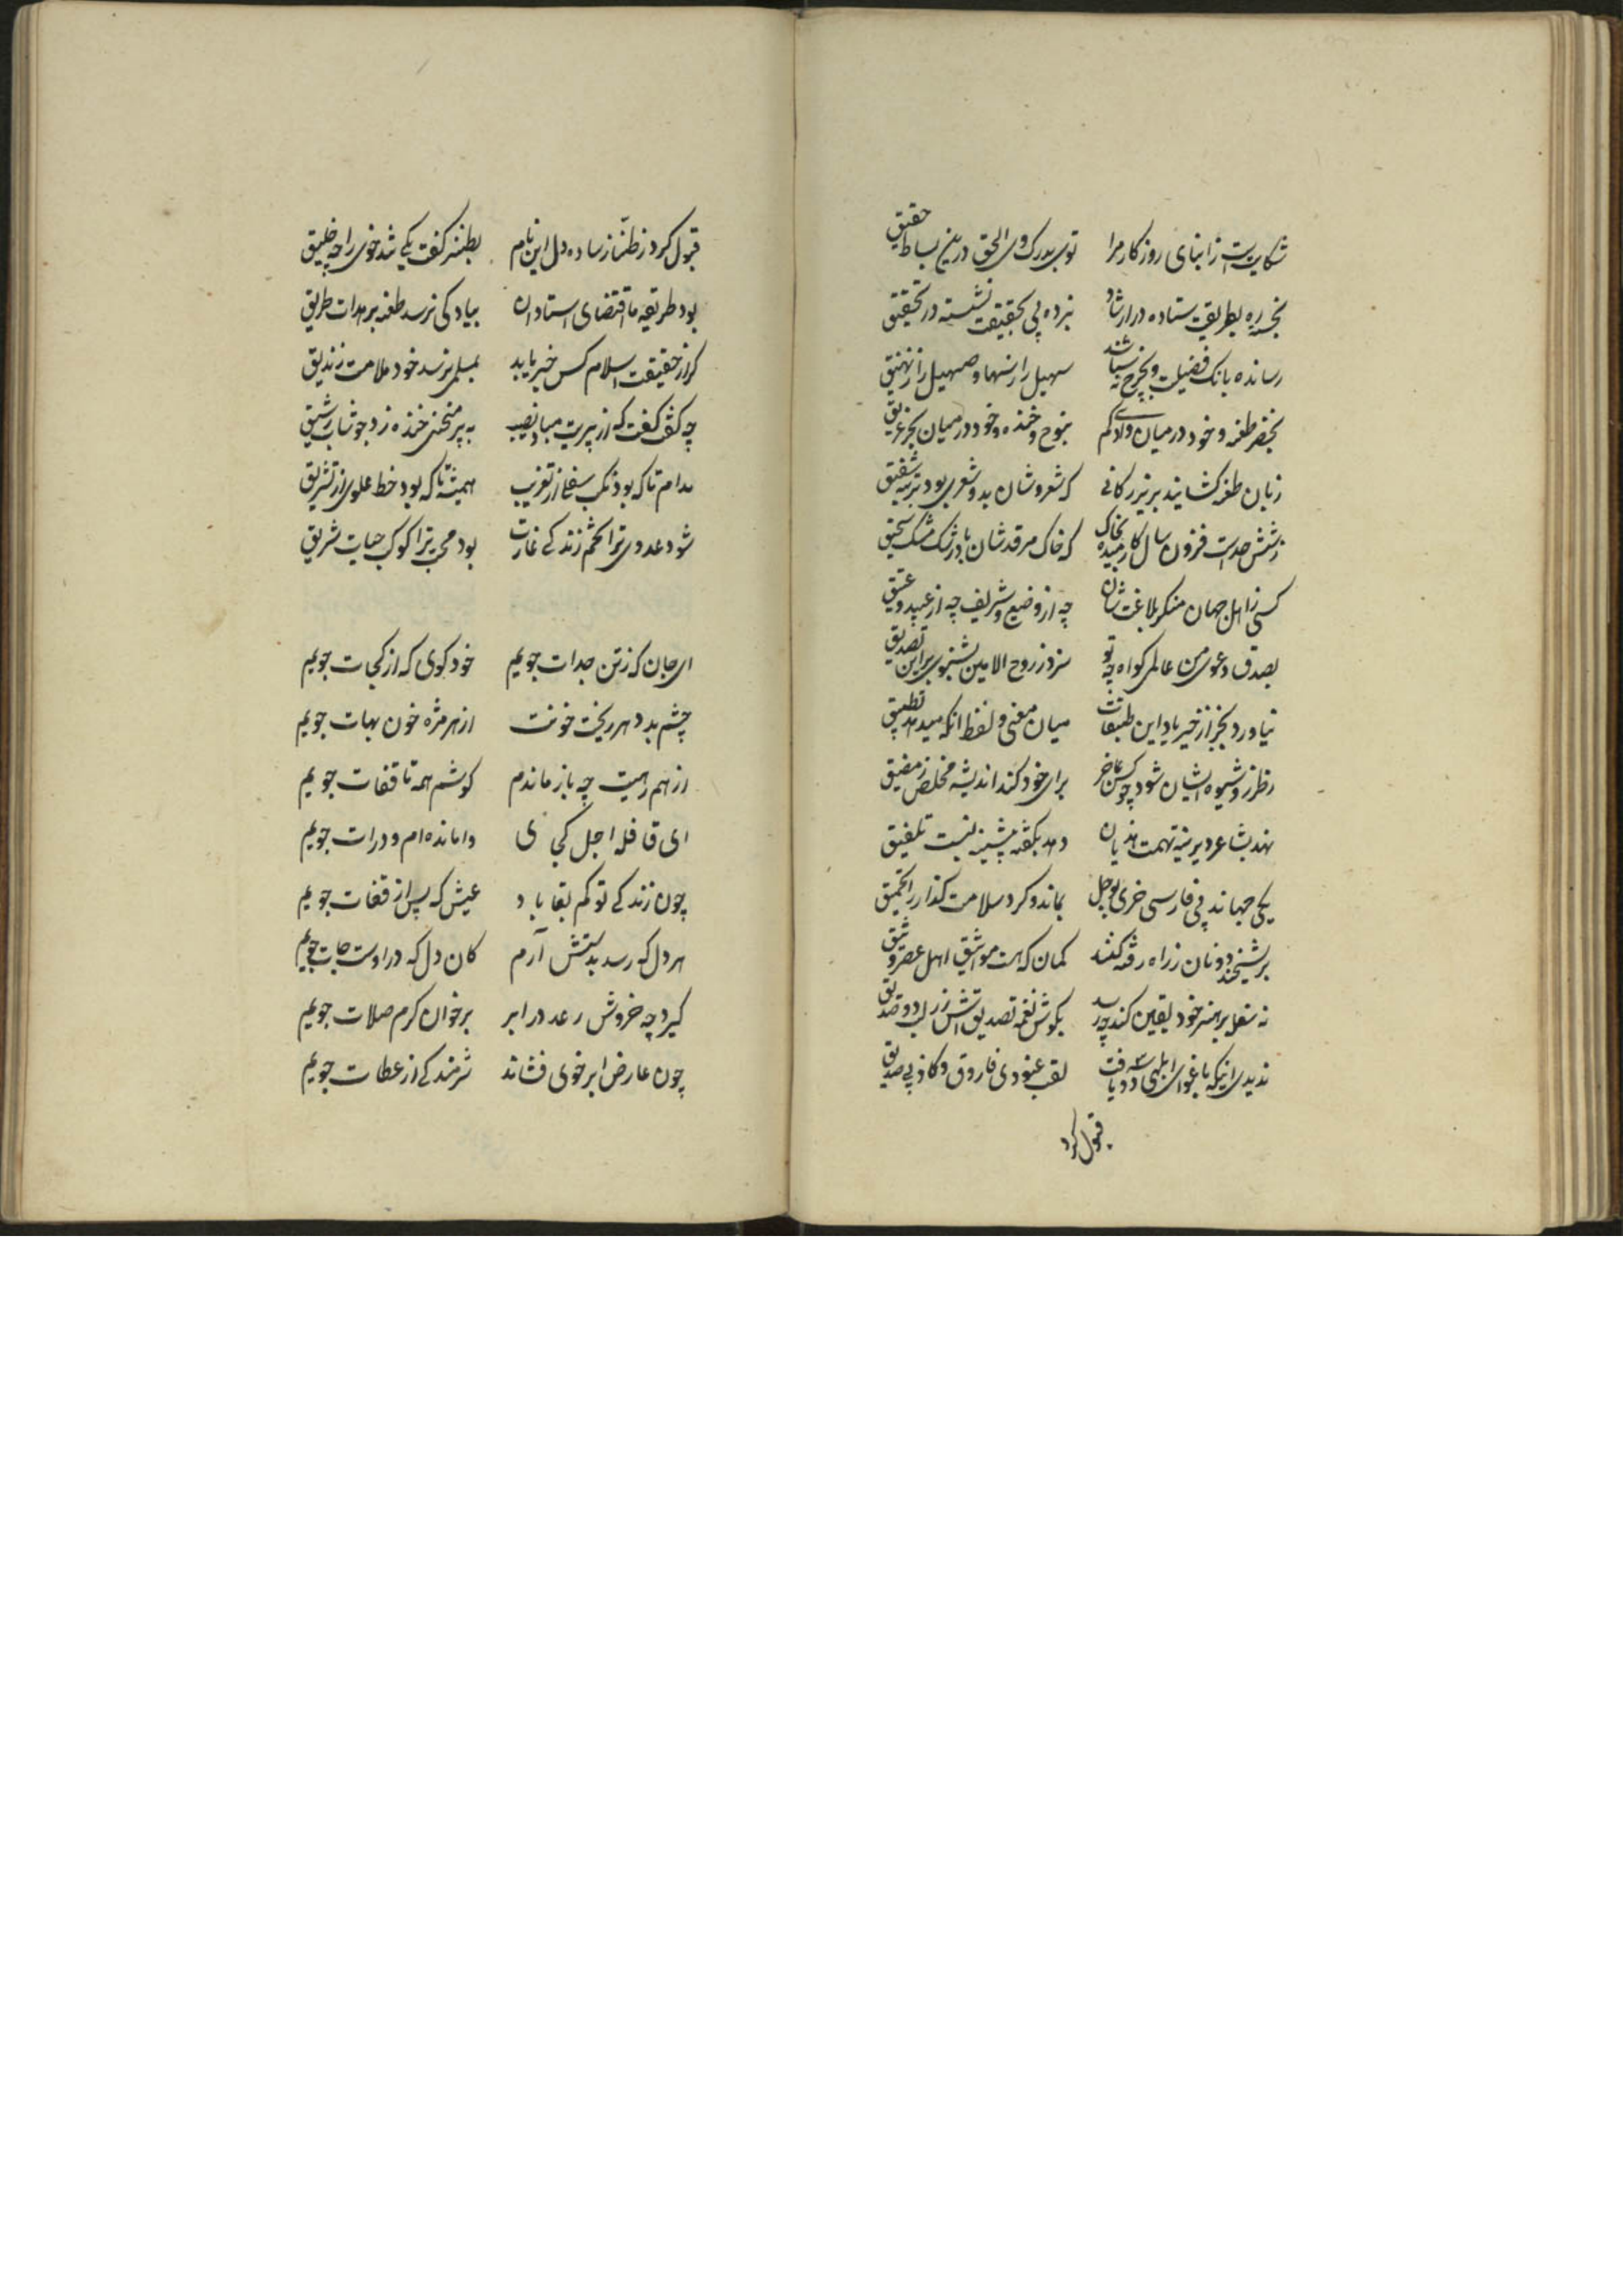 شکایت است ز ابنای روزکار مرا توی بدرک وی الحق درین بساط حقیق
نجسته ره بطریقت ستاده در ارشاد نبرده پی بحقیقت نشسته در تحقیق
رسانده بانک فضیلت بچرخ و نشناسند سهیل را ز سها و صهیل را ز نهیق
بخضر طعنه و خود در میان وادی کم بنوح خنده و خود در میان بحر غریق
زبان طعنه کشایند بر بزرکانی که شعر وشان بد و شعری بود شفیق
ز ششصد است فزون سال کارمیده بخاک که خاک مرقدشان باد رشک مشک سحیق
کسی ز اهل جهان منکر بلاغت شان چه از وضیع و شریف چه از عبید و عتیق
بصدق دعوی من عالمی کواه چه تو سزد ز روح الامین بشنوی برین تصدیق
نیاورد بجز از خیر یاد این طبقات میان معنی و لفظ انکه میدهد تطبیق
ز طرز و شیوه ایشان شود چو کس عاجز برای خود کند اندیشه مخلص ز مضیق
نهد بشاعر دیرینه تهمت هذیان دهد بکفته پیشینه نسبت تلفیق
یکی جهاند پی فارسی خری بوحل بماند و کرد سلامت کذار را تحمیق
بریشخند دونان ز راه رفته کنند کمان که هست مواثیق اهل عصر وثیق
نه شعلی بر هنر خود یقین کند چه رسد بکوش نغمه تصدیقش از لب دو صدیق
ندیدی اینکه باغوای ابلهی سه دو یافت لقب عنودی فاروق و کاذبی صدیق
قبول کرد
قبول کرد ز طناز ساده دل این نام بطنز کفت یکی شد خوی را چه خلیق
بود طریقه ما اقتضای استادان بیاد کی نرسد طعنه بر هدات طریق
کر از حقیقت اسلام کس خبر یابد بمسلمی نرسد خود ملامت زندیق
چه کفت کفت که از پیریت مباد نصیب به پیر منحنی خنده زد جو شاب رشیق
مدام تا که بود نکب سفلی از تغریب همیشه تا که بود خط علوی از تشریق
شود عدوی ترا نجم زندکی غارب بود محب ترا کوکب حیات شریق
ای جان که ز تن جدات جویم خود کوی که از کجات جویم
چشم بد دهر ریخت خونت از هر مژه خون بهات جویم
از همرهیت چه باز ماندم کوشم همه تا قفات جویم
ای قافله اجل کجی ی وامانده ام و درات جویم
چون زندکی تو کم بقا باد عیش که پس از قفات جویم
هر دل که رسد بدستش آرم کان دل که در اوست جات جویم
کیرد چه خروش رعد در ابر بر خوان کرم صلات جویم
چون عارض ابر خوی فشاند شرمندکی از عطات جویم